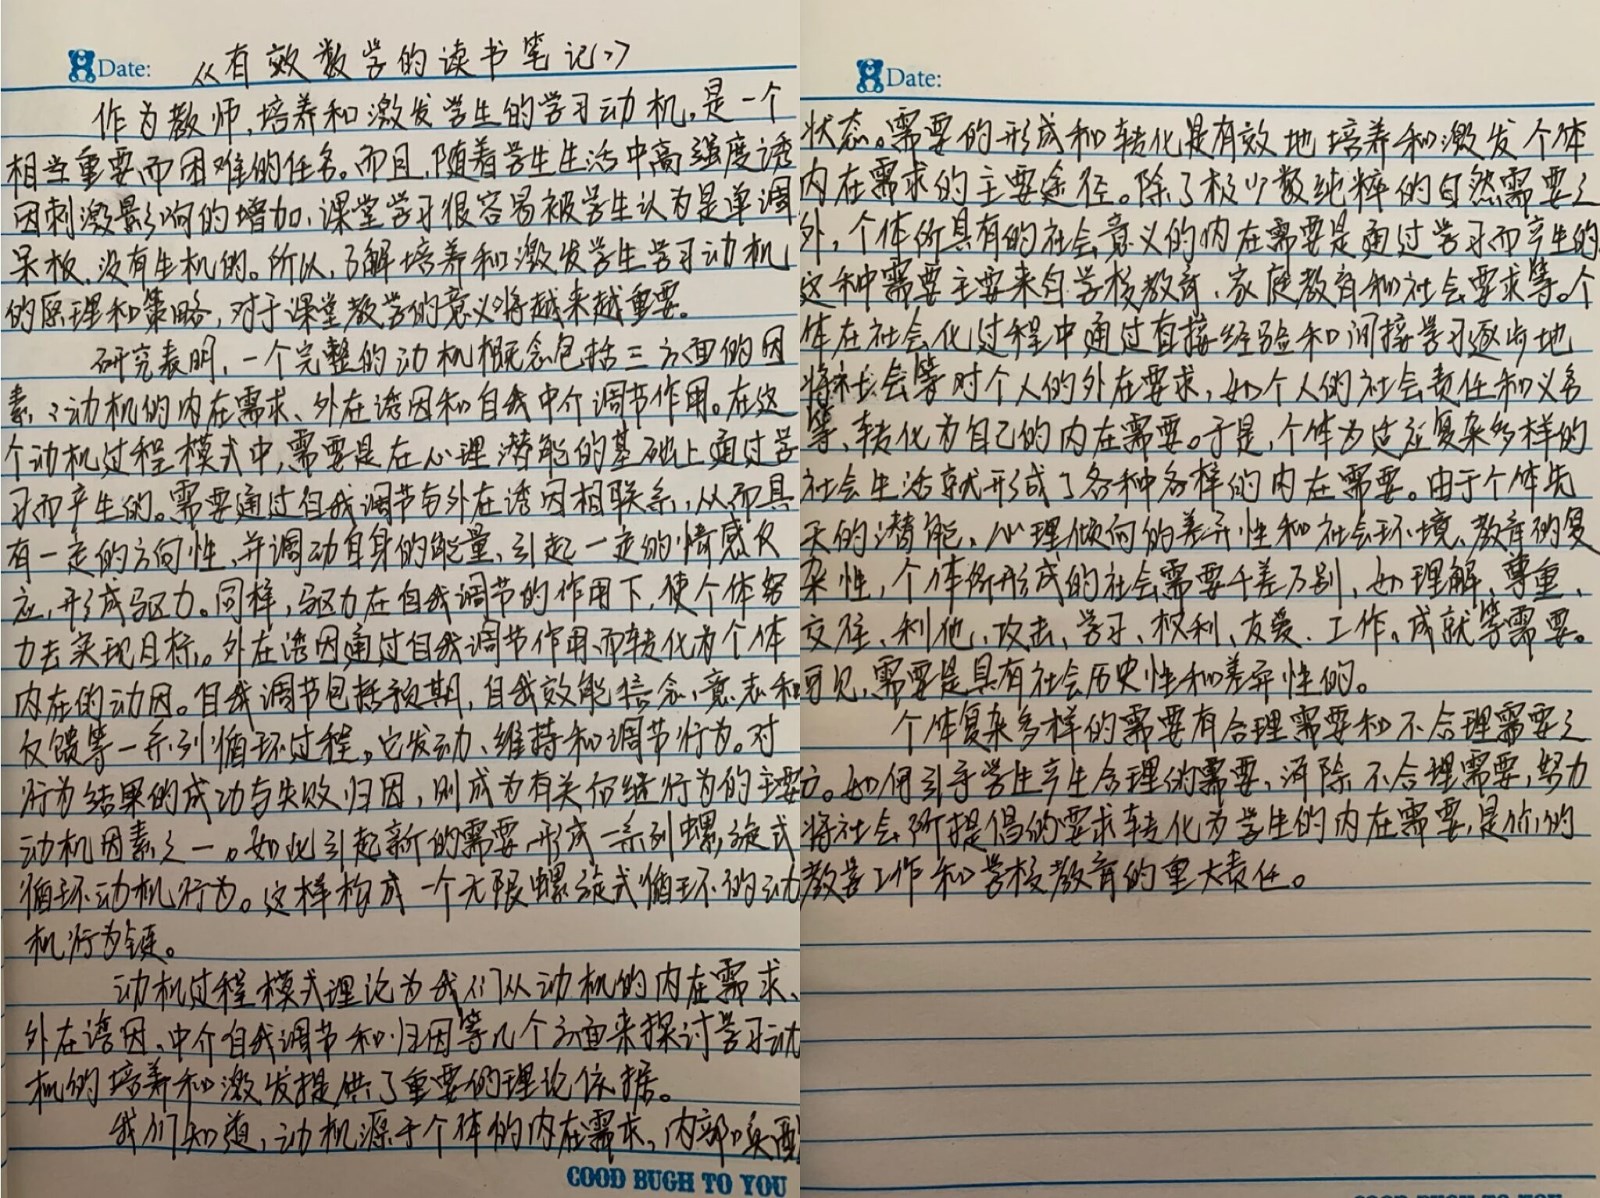 Date: 《有效教学的读书笔记》
作为教师,培养和激发学生的学习动机,是一个
相当重要而困难的任务。而且,随着学生生活中高强度诱
因刺激影响的增加,课堂学习很容易被学生认为是单调
呆板、没有生机的。所以,了解培养和激发学生学习动机
的原理和策略,对于课堂教学的意义将越来越重要。
研究表明,一个完整的动机概念包括三方面的因
素:动机的内在需求、外在诱因和自我中介调节作用。在这
个动机过程模式中,需要是在心理潜能的基础上通过学
习而产生的。需要通过自我调节与外在诱因相联系,从而具
有一定的方向性,并调动自身的能量,引起一定的情感反
应,形成驱力。同样,驱力在自我调节的作用下,使个体努
力去实现目标。外在诱因通过自我调节作用而转化为个体
内在的动因。自我调节包括预期,自我效能信念、意志和
反馈等一系列循环过程。它发动、维持和调节行为。对
行为结果的成功与失败归因,则成为有关后继行为的主要
动机因素之一。如此引起新的需要,形成一系列螺旋式
循环动机行为。这样构成一个无限螺旋式循环的动
机行为链。
动机过程模式理论为我们从动机的内在需求、
外在诱因、中介自我调节和归因等几个方面来探讨学习动
机的培养和激发提供了重要的理论依据。
我们知道,动机源于个体的内在需求,内部
COOD BUGH TO YOU
Date:
状态。需要的形成和转化是有效地培养和激发个体
内在需求的主要途径。除了极少数纯粹的自然需要之
外,个体所具有的社会意义的内在需要是通过学习而产生的
这种需要主要来自学校教育、家庭教育和社会要求等。个
体在社会化过程中通过直接经验和间接学习逐步地
将社会等对个人的外在要求,如个人的社会责任和义务
等、转化为自己的内在需要。于是,个体为适应复杂多样的
社会生活就形成了各种各样的内在需要。由于个体先
天的潜能、心理倾向的差异性和社会环境、教育的复
杂性,个体所形成的社会需要千差万别,如理解、尊重、
交往、利他、攻击、学习、权利、友爱、工作。成就等需要。
可见,需要是具有社会历史性和差异性的。
个体复杂多样的需要有合理需要和不合理需要之
方。如何引导学生产生合理的需要,消除不合理需要,努力
将社会所提倡的要求转化为学生的内在需要,是你的
教学工作和学校教育的重大责任。